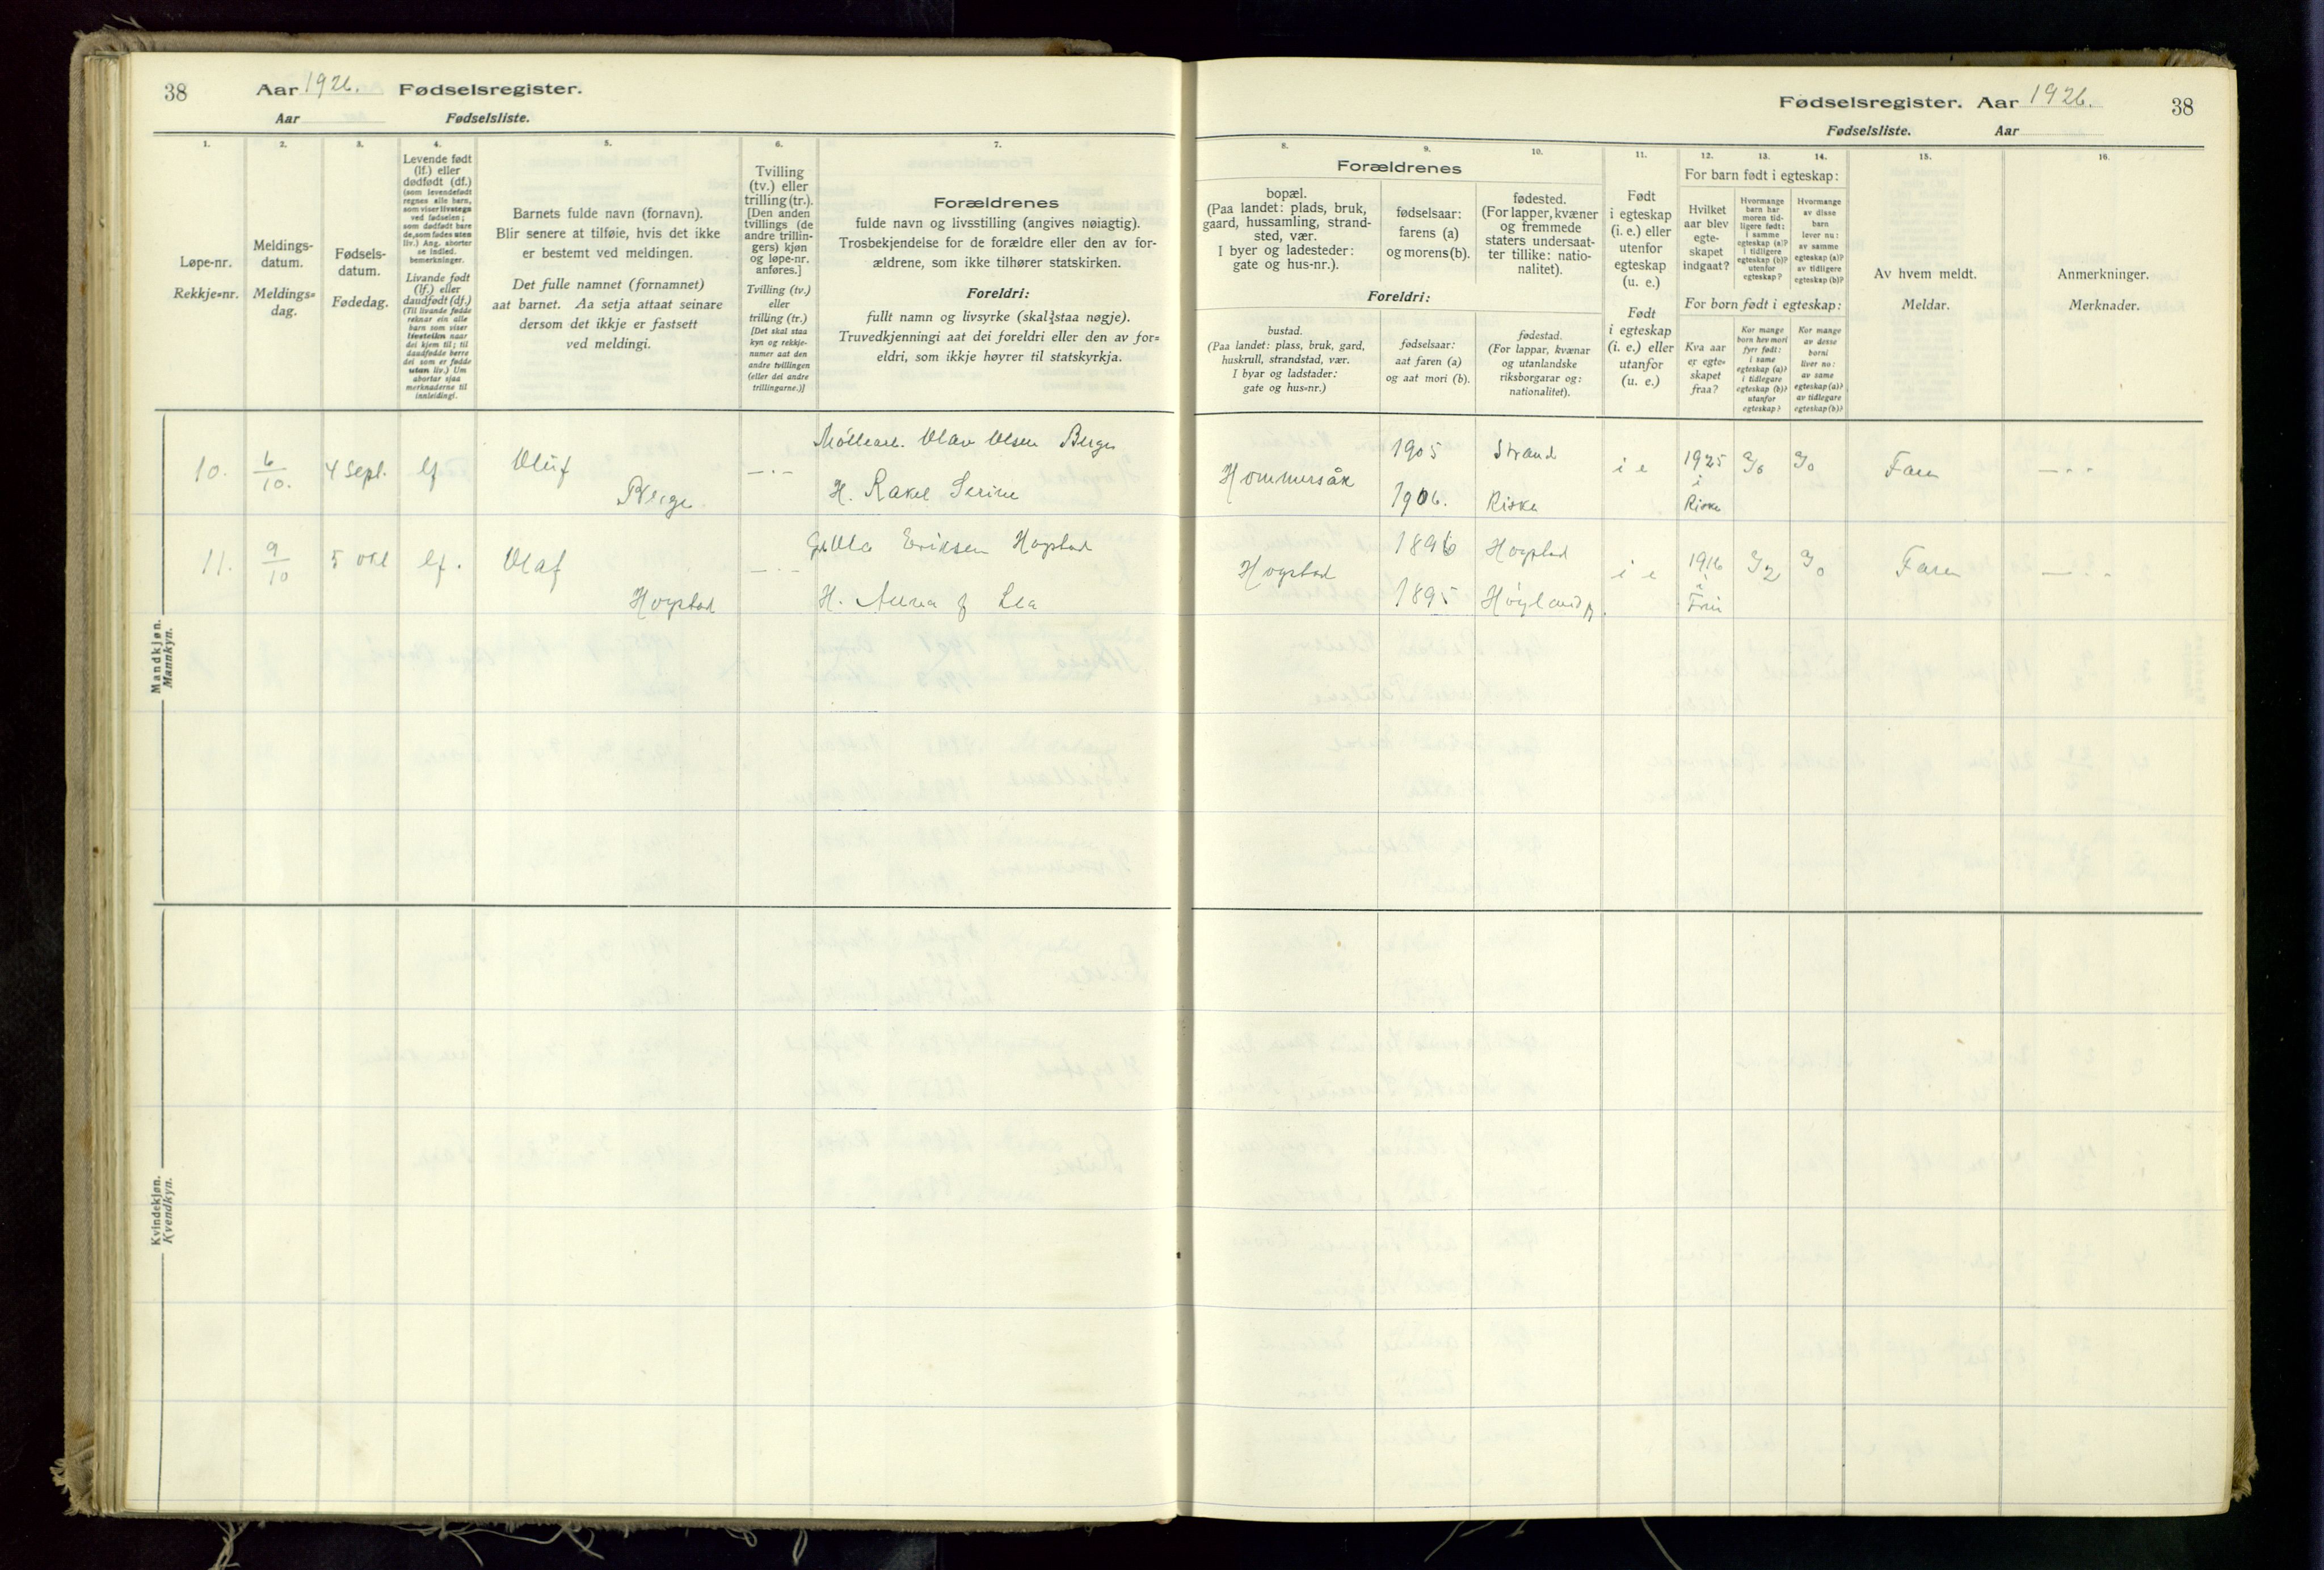 38 Aar 1926. Fødselsregister.
Aar Fødselsliste.
1. 2. 3. 4. 5. 6. 7.
Løpe-nr.
Rekkje=nr.
Meldings-
datum.
Meldings=
dag.
Fødsels-
datum.
Fødedag.
Levende født
(lf.) eller
dødfødt (df.)
(som levendefødt
regnes alle barn,
som viser livstegn
ved fødselen;
som dødfødt bare
de, som fødes uten
liv.) Ang. aborter
se indled.
bemerkninger.
Livande født
(lf.) eller
daudfødt (df.)
(Til livande fødde
reknar ein alle
barn som viser
livsteikn naar
dei kjem til; til
daudfødde berre
dei som er fødde
utan liv.) Um
abortar sjaa
merknaderne til
innleidingi.
Barnets fulde navn (fornavn).
Blir senere at tilføie, hvis det ikke
er bestemt ved meldingen.
Det fulle namnet (fornamnet)
aat barnet. Aa setja attaat seinare
dersom det ikkje er fastsett
ved meldingi.
Tvilling
(tv.) eller
trilling (tr.).
[Den anden
tvillings (de
andre trillin-
gers) kjøn
og løpe-nr.
anføres.]
Tvilling (tv.)
eller
trilling (tr.)
[Det skal staa
kyn og rekkje-
numer aat den
andre tvillingen
(eller dei andre
trillingarne.)]
Forældrenes
fulde navn og livsstilling (angives nøiagtig).
Trosbekjendelse for de forældre eller den av for-
ældrene, som ikke tilhører statskirken.
Foreldri:
fullt namn og livsyrke (skal staa nøgje).
Truvedkjenningi aat dei foreldri eller den av for=
eldri, som ikkje høyrer til statskyrkja.
Mandkjøn.
Mannkyn.
10. 6/10. 4 sept. lf Oluf —.— Olav Olsen Berge
Berge H. Rakel Serine
11. 9/10 5 okt lf. Olaf —.— Eriksen Hogstad
Hogstad H. Anna f Lea
Kvindekjøn.
Kvendkyn.
Fødselsregister. Aar 1926. 38
Fødselsliste. Aar
8. 9. 10. 11. 12. 13. 14. 15. 16.
Forældrenes
bopæl.
(Paa landet: plads, bruk,
gaard, hussamling, strand-
sted, vær.
I byer og ladesteder:
gate og hus-nr.).
fødselsaar:
farens (a)
og morens (b).
fødested.
(For lapper, kvæner
og fremmede
staters undersaat-
ter tillike: natio-
nalitet).
Foreldri:
bustad.
(Paa landet: plass, bruk, gard,
huskrull, strandstad, vær.
I byar og ladstader:
gate og hus-nr.)
fødselsaar:
aat faren (a)
og aat mori (b).
fødestad.
(For lappar, kvænar
og utanlandske
riksborgarar og:
nationalitet).
Født
i egteskap
(i. e.) eller
utenfor
egteskap
(u. e.)
Født
i egteskap
(i. e.) eller
utanfor
(u. e.)
For barn født i egteskap:
Hvilket
aar blev
egte-
skapet
indgaat?
Hvormange
barn har
moren tid-
ligere født:
i samme
egteskap (a)?
i tidligere
egteskap (b)?
utenfor
egteskap?
Hvormange
av disse
barn
lever nu:
av samme
egteskap (a)?
av tidligere
egteskap (b)?
For born født i egteskap:
Kva aar
er egte-
skapet
fraa?
Kor mange
born hev mori
fyrr født:
i same
egteskap (a)?
i tidlegare
egteskap (b)?
utanfor
egteskap?
Kor mange
av desse
borni
liver no:
av same
egteskap (a)?
av tidlegare
egteskap (b)?
Av hvem meldt.
Meldar.
Anmerkninger.
Merknader.
Hommersåk 1905 Strand i e 1925 Faren — - -
1906. Riska i Riska
Hogstad 1896 Hogstad i e 1916 Faren — - -
1895 Høyland p. i